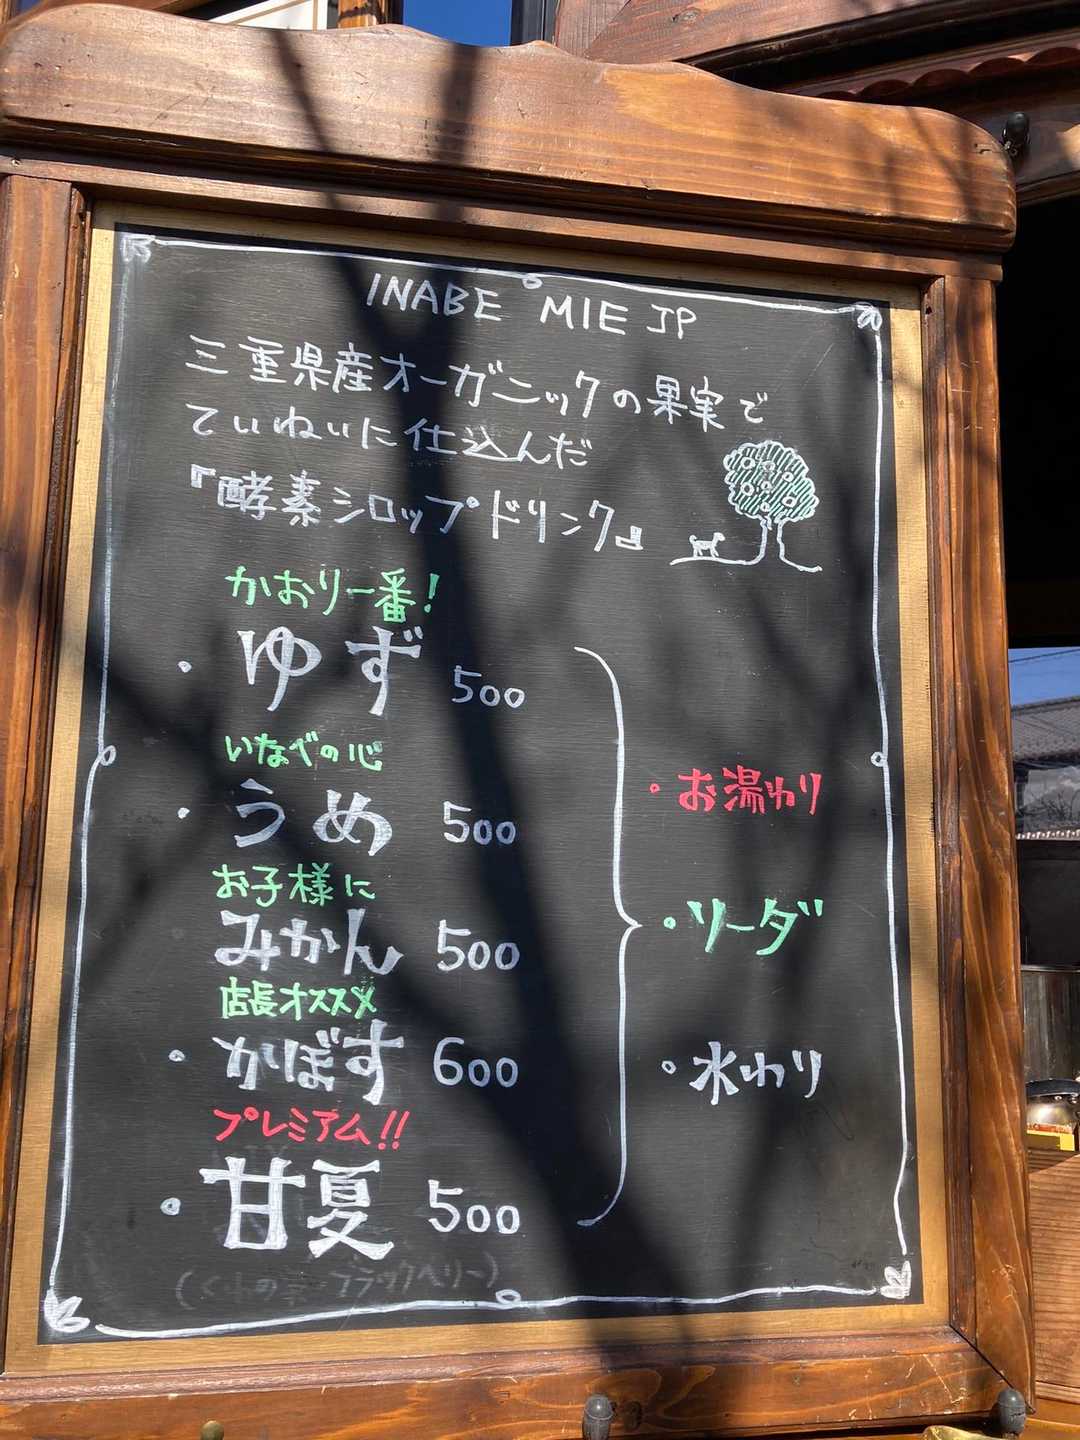 INABE MIE JP
三重県産オーガニックの果実で
ていねいに仕込んだ
『酵素シロップドリンク』
かおり一番!
・ゆず 500
いなべの心
・うめ 500
お子様に
みかん 500
店長オススメ
・かぼす 600
プレミアム!!
・甘夏 500
・お湯わり
・ソーダ
・水わり